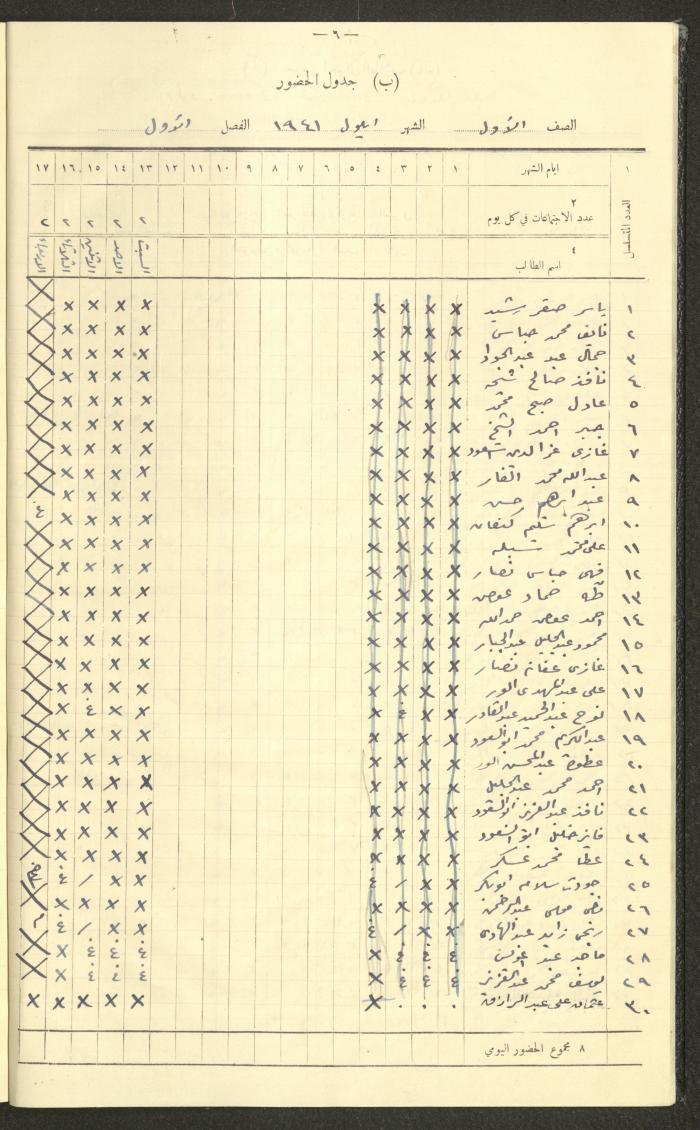 — ٦ —
(ب) جدول الحضور
الصف الاول الشهر ايلول ١٩٤١ الفصل الاول
١ ايام الشهر ١ ٢ ٣ ٤ ٥ ٦ ٧ ٨ ٩ ١٠ ١١ ١٢ ١٣ ١٤ ١٥ ١٦ ١٧
العدد المتسلسل
٢
عدد الاجتماعات في كل يوم ٢ ٢ ٢ ٢ ٢
٤
اسم الطالب السبت الاحد الاثنين الثلاثاء الاربعاء
١ ياسر صقر رشيد x x x x x x x x
٢ نايف محمد عباس x x x x x x x x
٣ جمال عبد عبد الجواد x x x x x x x x
٤ نافذ صالح x x x x x x x x
٥ عادل صبح محمد x x x x x x x x
٦ جبر احمد الشيخ x x x x x x x x
٧ غازى عز الدين x x x x x x x x
٨ عبدالله محمد الفار x x x x x x x x
٩ عبد ابرهيم حسن x x x x x x x x
١٠ ابرهيم سليم كنعان x x x x x x x x
١١ على محمد x x x x x x x x
١٢ عباس نصار x x x x x x x x
١٣ طه حماد عوض x x x x x x x x
١٤ احمد عوض حمدالله x x x x x x x x
١٥ محمود عبدالجليل عبدالجبار x x x x x x x x
١٦ غازى نصار x x x x x x x x
١٧ على عبدالمهدى الور x x x x x x x x
١٨ نوح عبدالحميد عبدالقادر x x غ x x x غ x
١٩ عبدالكريم محمد ابوالسعود x x x x x x x x
٢٠ عطوة عبدالمحسن الور x x x x x x x x
٢١ احمد محمد عبدالجليل x x x x x x x x
٢٢ نافذ عبدالعزيز ابوالسعود x x x x x x x x
٢٣ فايز خليل ابوالسعود x x x x x x x x
٢٤ عطا محمد عسكر x x x x x x x x
٢٥ جودت سلامه ابوبكر x x / غ x x / غ
٢٦ موسى عبدالرحمن x x x x x x x x
٢٧ زايد عبدالهادى x x / غ x x / غ
٢٨ ماجد عبد غ غ غ x غ غ غ x
٢٩ يوسف محمد عبدالعزيز غ غ غ x غ غ غ x
٣٠ عثمان على عبدالرازق . . . x x x x x x
٨ مجموع الحضور اليومي